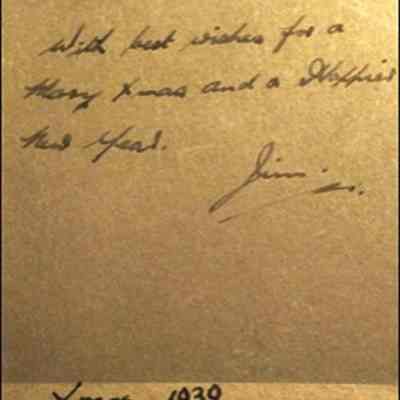 With best wishes for a
Merry Xmas and a Happier
New Year.
Jim.
Xmas 1939